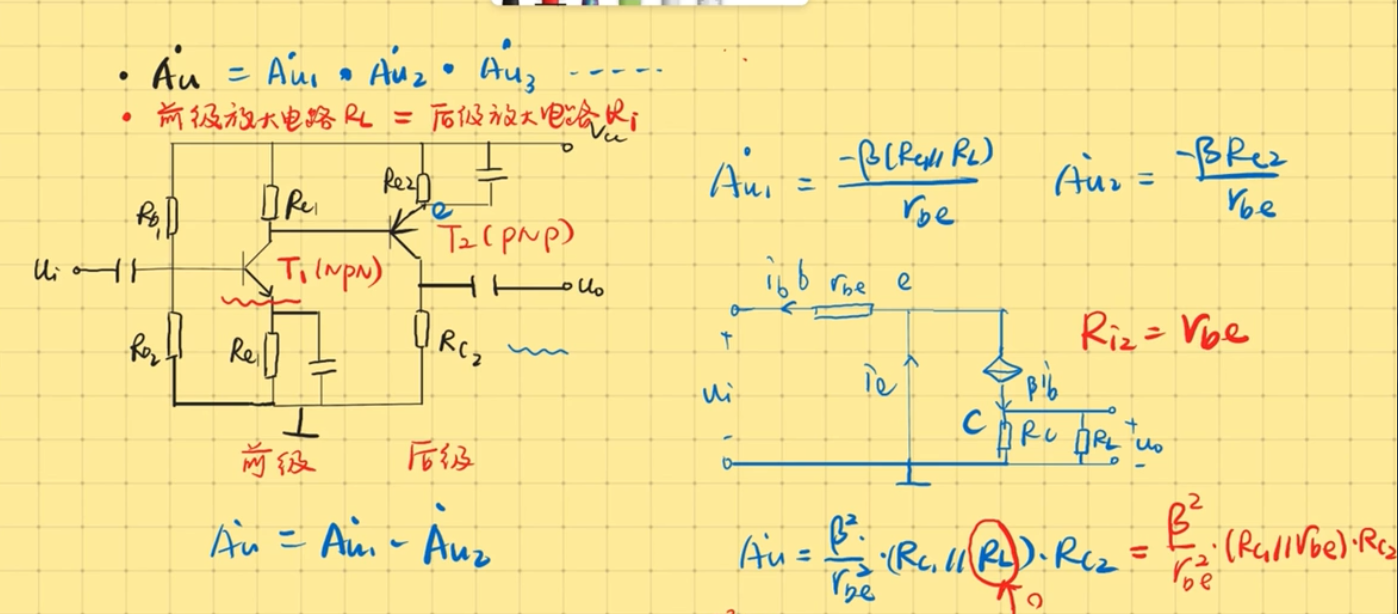 • Ȧu = Ȧu₁ • Ȧu₂ • Ȧu₃ -----
• 前级放大电路 RL = 后级放大电路 Ri
Vcc
Rb₁
Rc₁
Re₂
e
T₂(PNP)
Ui
T₁(NPN)
Uo
Rb₂
Re₁
Rc₂
前级
后级
Ȧu = Ȧu₁ - Ȧu₂
Ȧu₁ = -β(Rc₁//RL) / rbe
Ȧu₂ = -βRc₂ / rbe
ib b rbe e
Ri₂ = rbe
+
ui
-
ie
βib
C
Rc
RL
+
uo
-
Ȧu = β²/rbe² · (Rc₁//RL) · Rc₂ = β²/rbe² · (Rc₁//rbe) · Rc₂